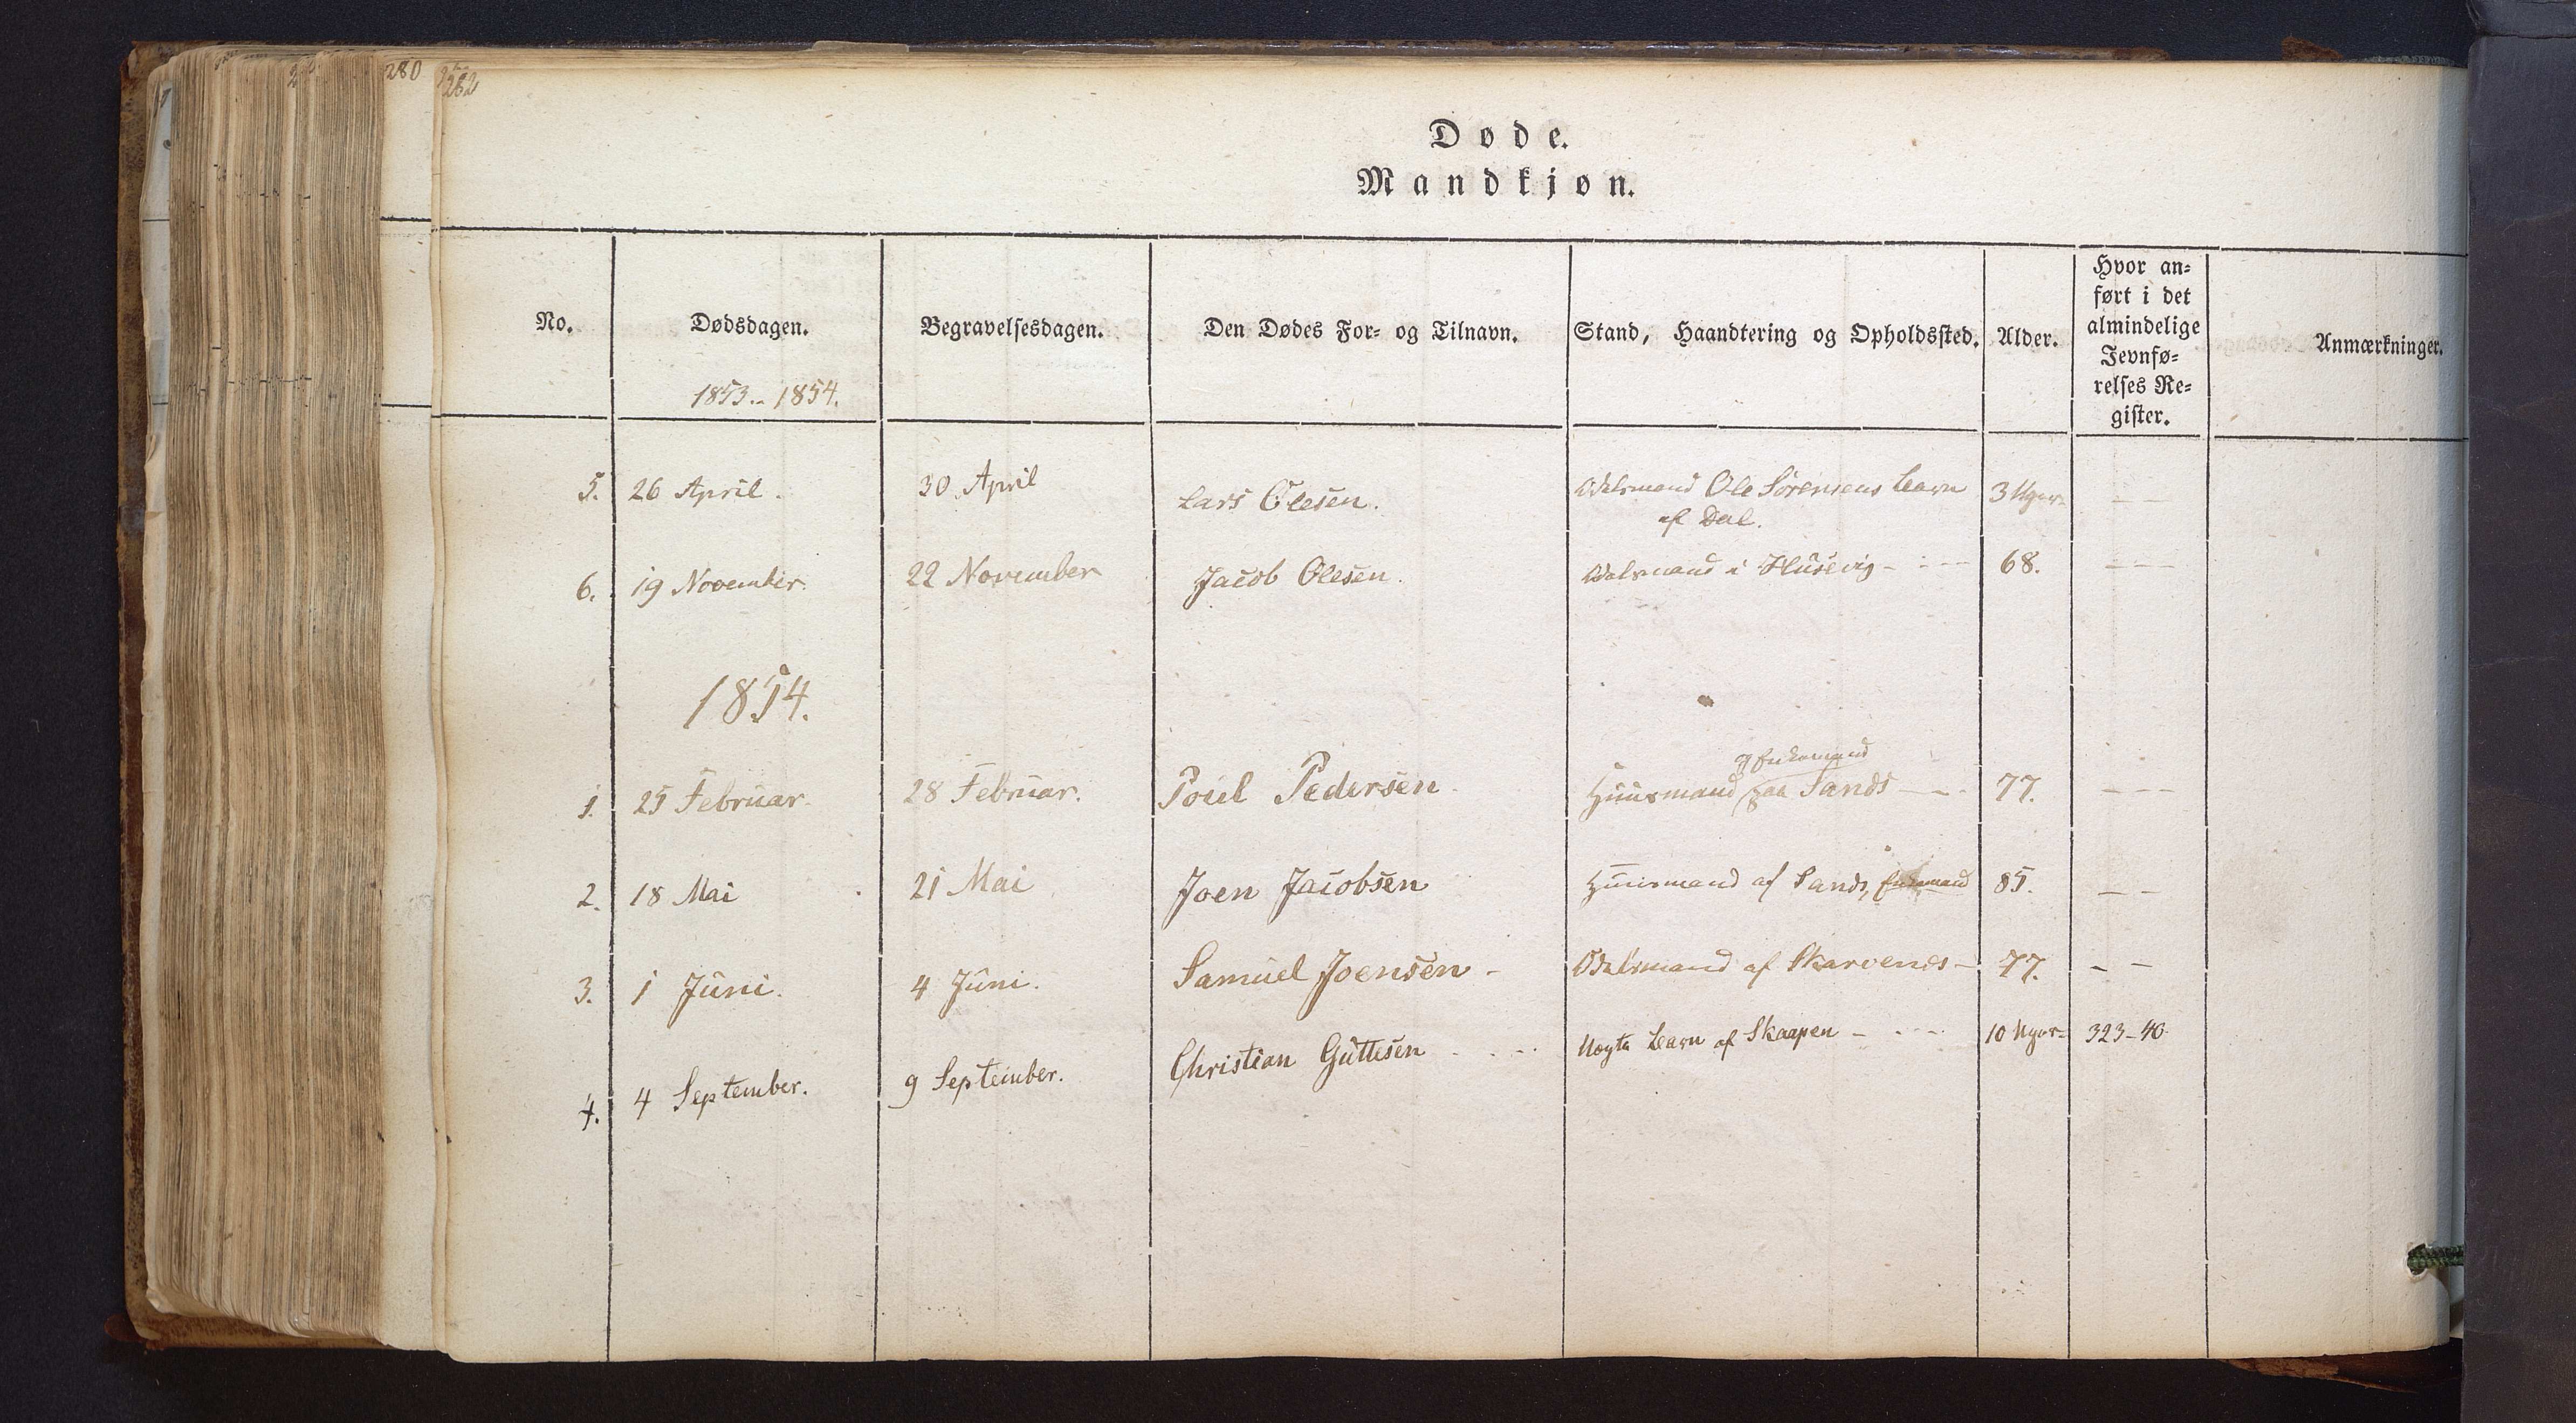 280
282
Døde.
Mandkjøn.
No. Dødsdagen. Begravelsesdagen. Den Dødes For- og Tilnavn. Stand, Haandtering og Opholdssted. Alder. Hvor an-
ført i det
almindelige
Jevnfø-
relses Re-
gister. Anmærkninger.
1853.-1854.
5. 26 April. 30 April Lars Olesen. Odelsmand Ole Sørensens Barn 3 Uger - -
af Dal.
6. 19 November. 22 November Jacob Olesen. Odelsmand i Húsevig - - - - 68. - - -
1854.
og Enkemand
1. 25 Februar. 28 Februar. Poul Pedersen. Huusmand paa Sands - - 77. - - -
2. 18 Mai 21 Mai Joen Jacobsen Huusmand af Sands, Enkemand 85. - -
3. 1 Juni. 4 Juni. Samuel Joensen - Odelsmand af Skarvenes - 77. - -
4. 4 September. 9 September. Christian Guttesen - - - Uægte Barn af Skaapen - - - - 10 Uger - 323-40.